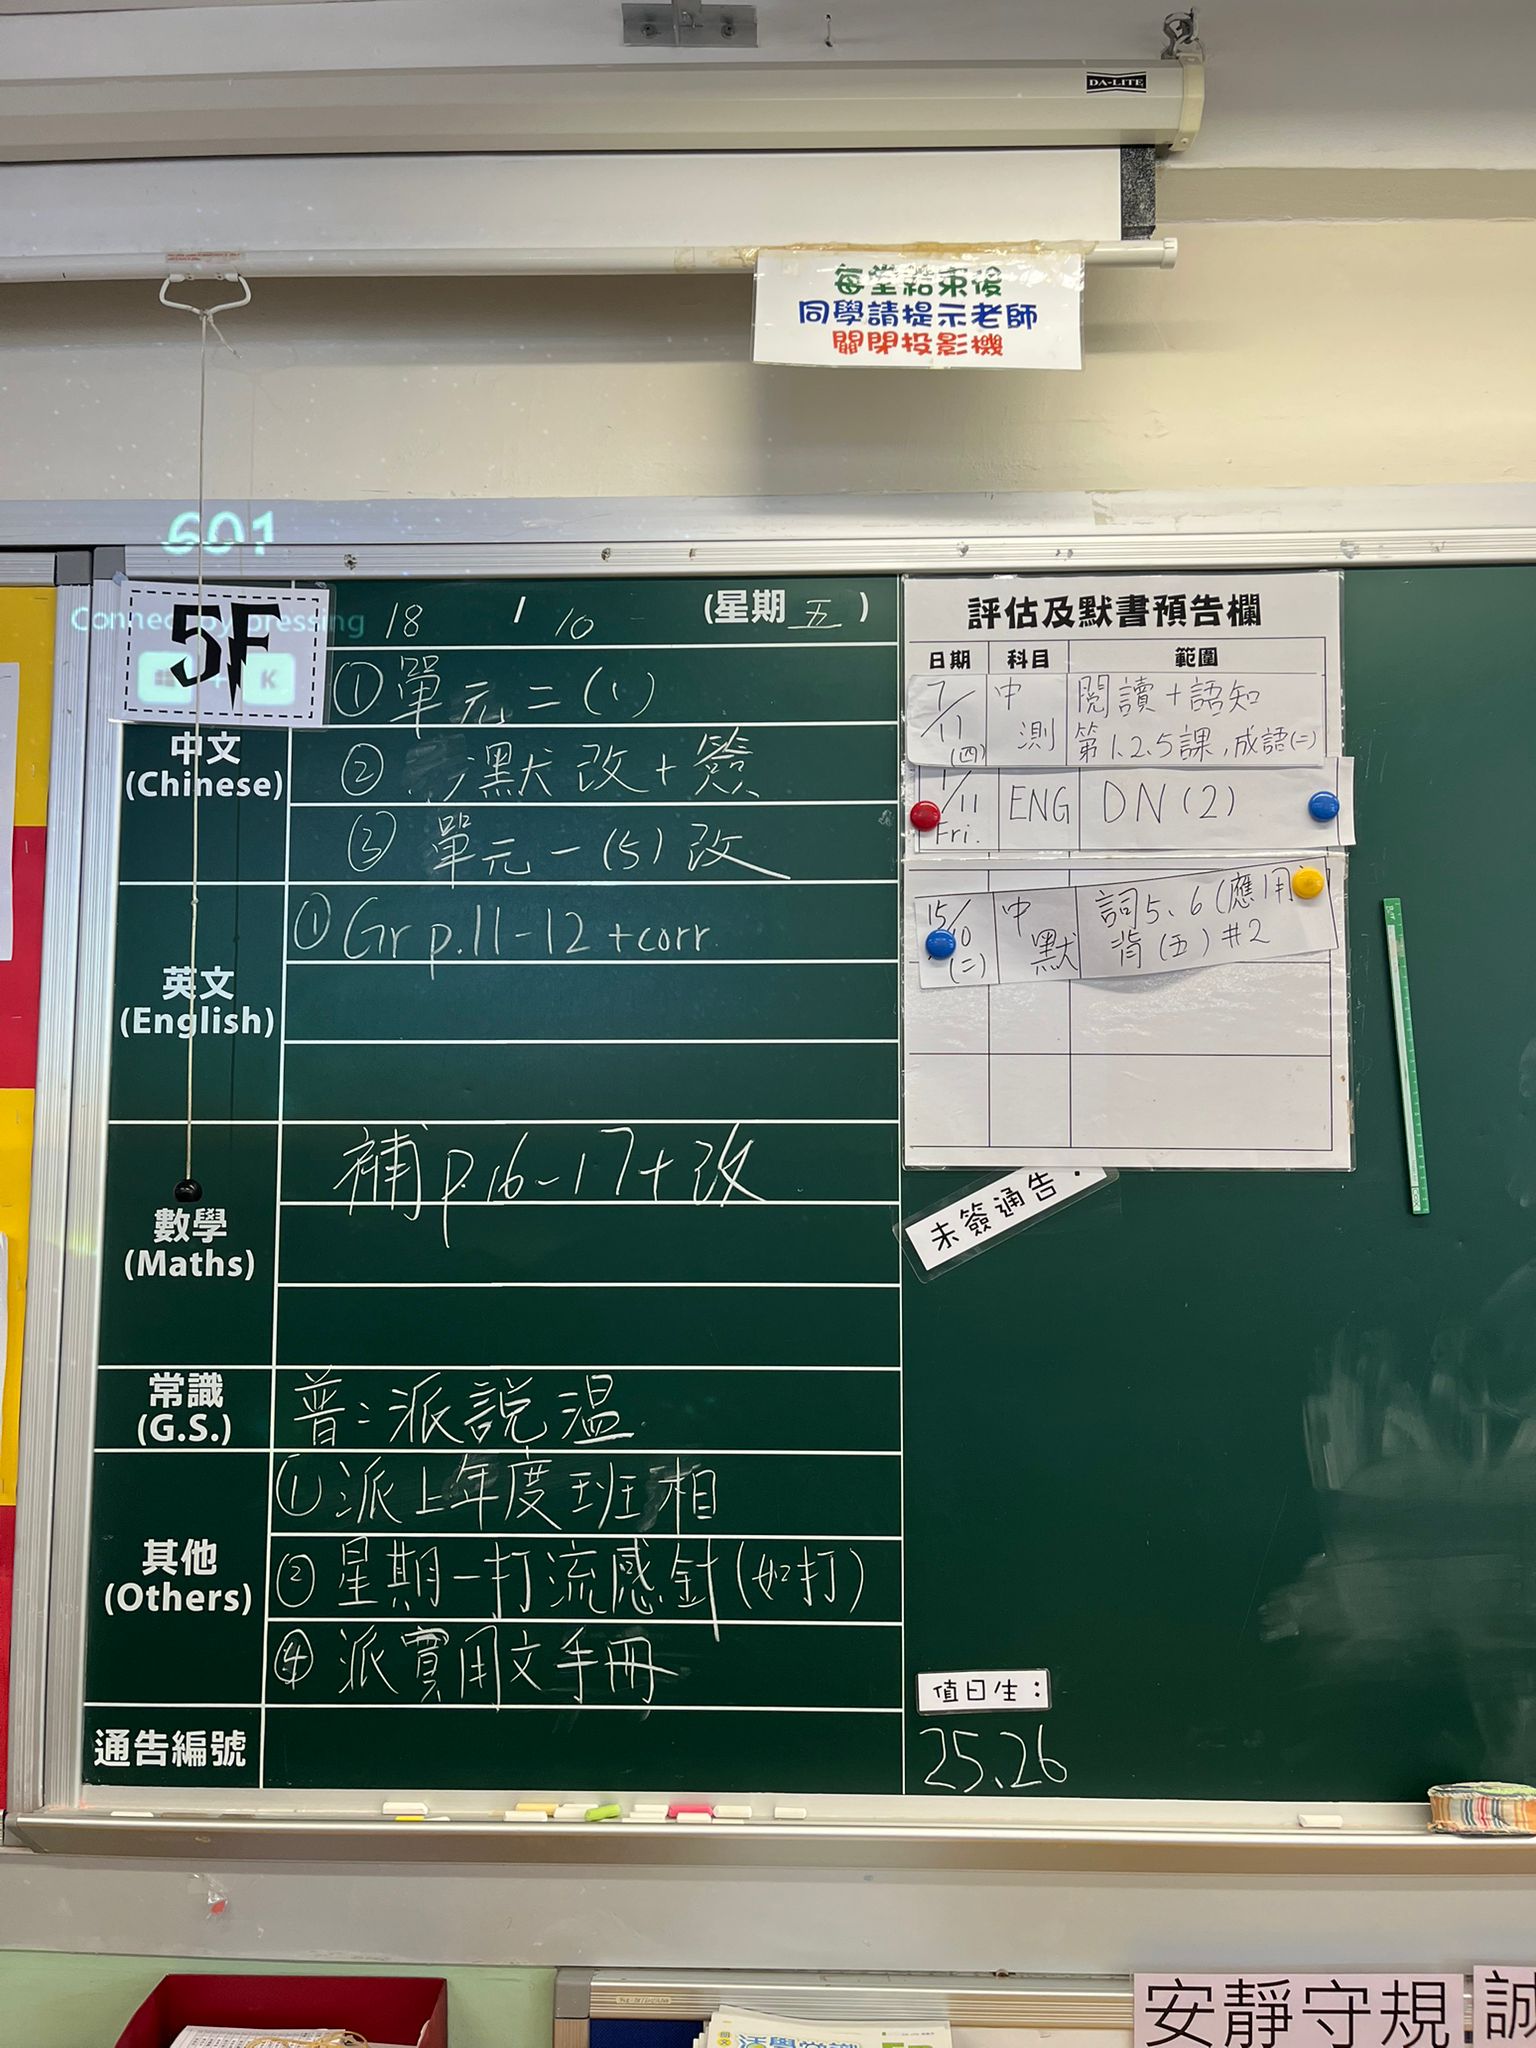 DA-LITE
每堂結束後
同學請提示老師
關閉投影機
601
Connect by pressing
K
5F
18 / 10 (星期五)
中文
(Chinese)
①單元二(1)
② 默改+簽
③ 單元一(5)改
英文
(English)
①Gr p.11-12 +corr
數學
(Maths)
補 p.16-17+改
常識
(G.S.)
普:派説温
其他
(Others)
①派上年度班相
②星期一打流感針(如打)
④派實用文手冊
通告編號
評估及默書預告欄
日期 科目 範圍
7/11 (四) 中測 閱讀+語知
第1.2.5課,成語(二)
1/11 Fri. ENG DN(2)
15/10 (二) 中默 詞5、6(應用
背(五)#2
未簽通告:
值日生:
25、26
安靜守規
誠